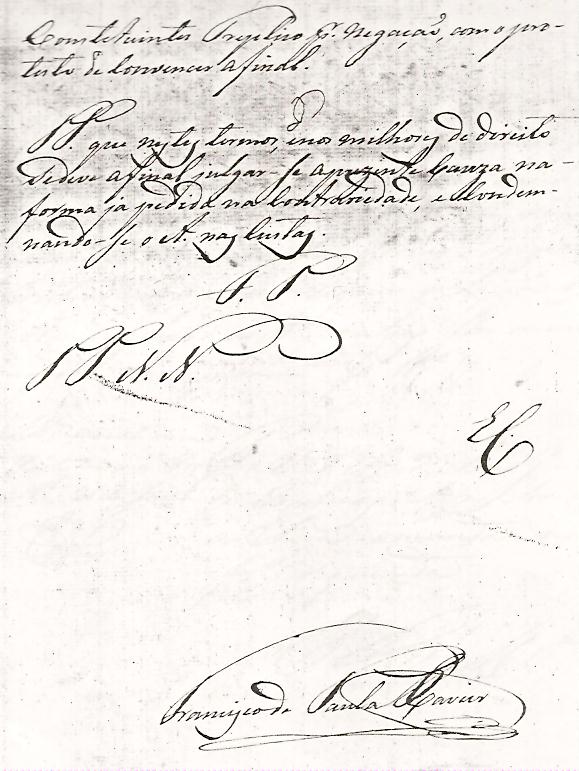 Constituintes Treplica pr. Negação, com o pro-
testo de convencer afinal.
P
PP. que nestes termos, e nos melhores de direito
Sedeve afinal julgar-Se aprezente Cauza na-
forma já pedida na Contrariedade, e Condem-
nando-Se o A. nas Custas.
F. P.
PP N. N.
E C.
Francisco de Paula Xavier